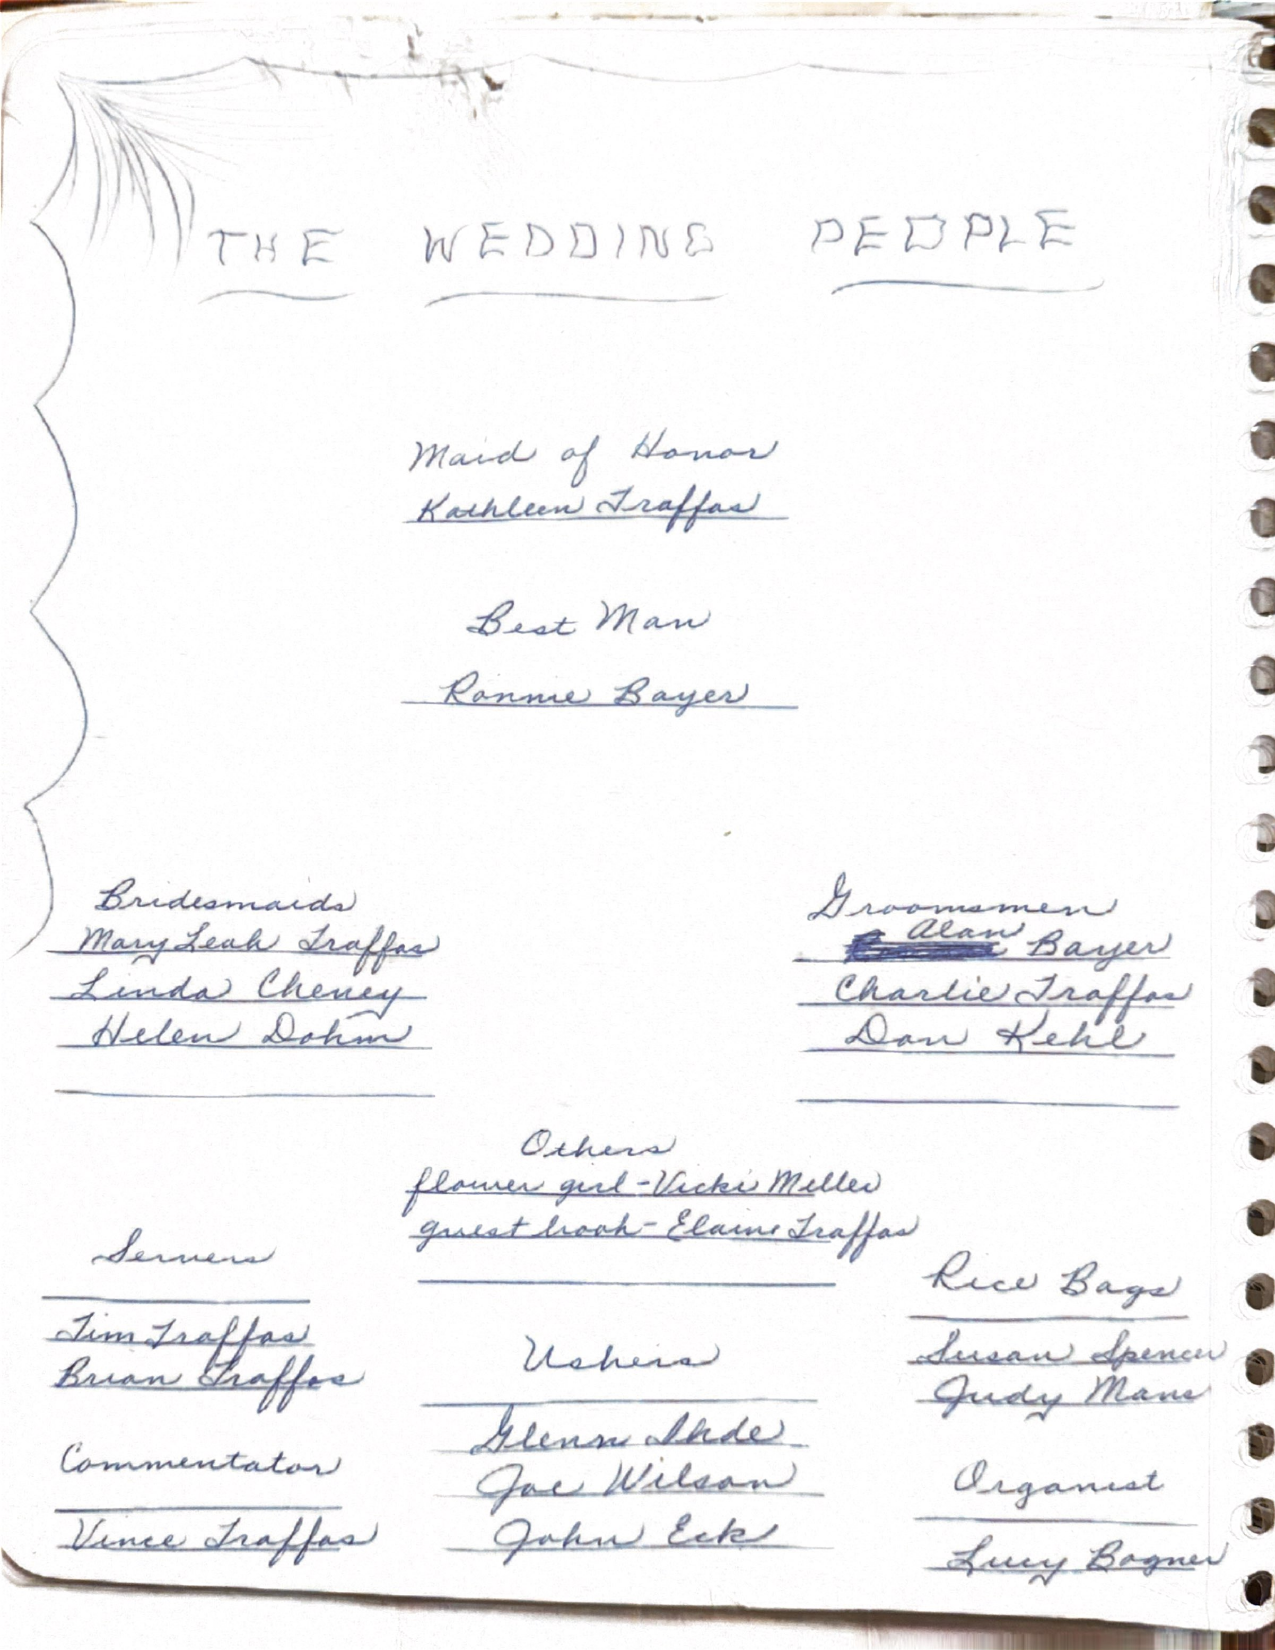 THE WEDDING PEOPLE
Maid of Honor
Kathleen Traffas
Best Man
Ronnie Bayer
Bridesmaids
Mary Leah Traffas
Linda Cheney
Helen Dohm
Groomsmen
Alan Bayer
Charlie Traffas
Dan Kehl
Others
flower girl - Vicki Miller
guest book - Elaine Traffas
Servers
Tim Traffas
Brian Traffas
Commentator
Vince Traffas
Ushers
Glenn Ihde
Joe Wilson
John Eck
Rice Bags
Susan Spencer
Judy Mans
Organist
Lucy Bogner